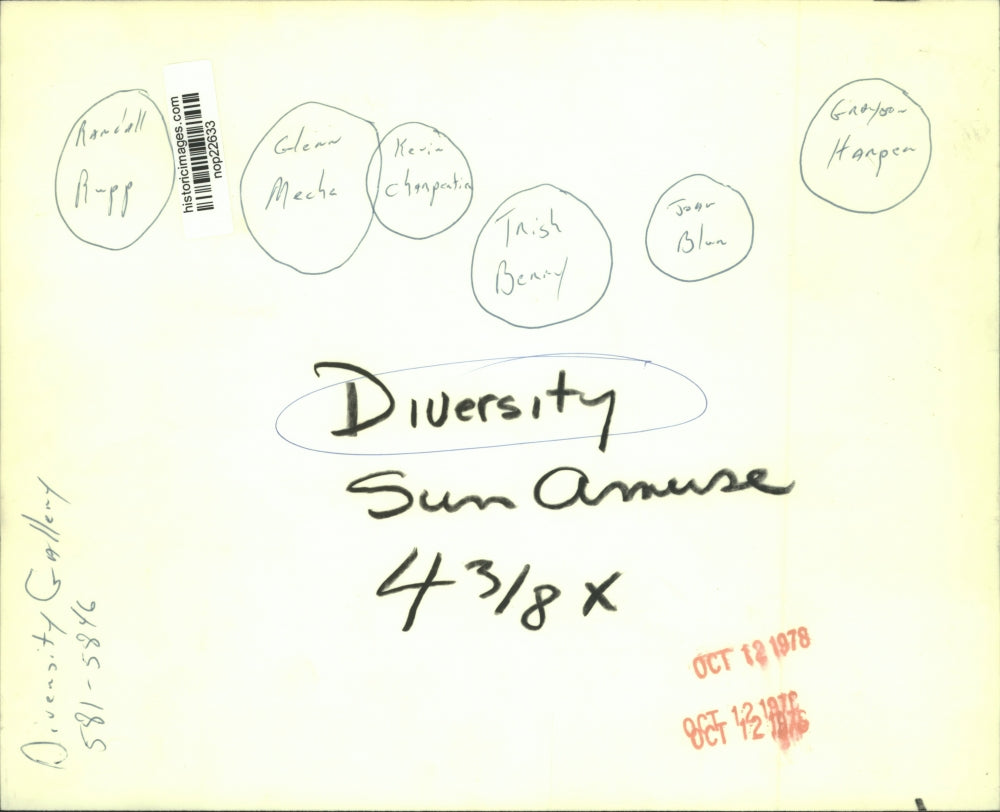 Randall
Rupp
historicimages.com
nop22633
Glenn
Mecha
Kevin
Charpentier
Trish
Benny
Joan
Blum
Grayson
Harper
Diversity
Sun Amuse
4 3/8 x
Diversity Gallery
581-5846
OCT 12 1978
OCT 12 1978
OCT 12 1978